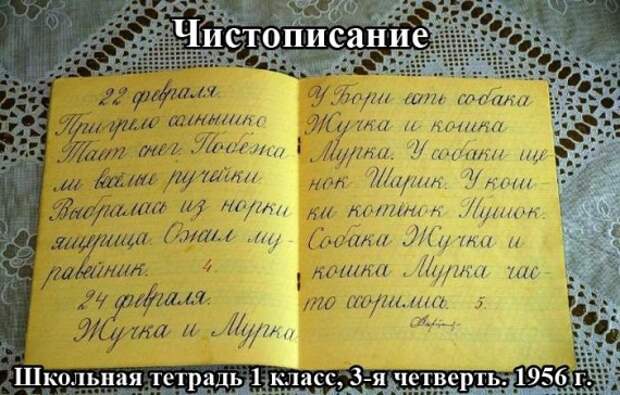 Чистописание
22 февраля.
Пригрело солнышко
Тает снег. Побежа
ли весёлые ручейки.
Выбралась из норки
ящерица. Ожил му-
равейник. 4.
24 февраля.
Жучка и Мурка
У Бори есть собака
Жучка и кошка
Мурка. У собаки ще-
нок Шарик. У кош-
ки котёнок Пушок.
Собака Жучка и
кошка Мурка час-
то ссорились. 5.
Школьная тетрадь 1 класс, 3-я четверть. 1956 г.